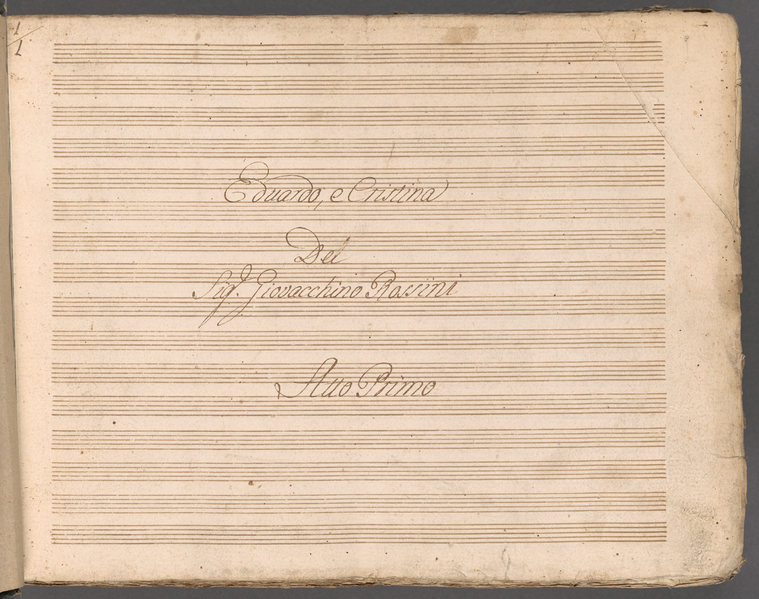 1
1
Eduardo, e Cristina
Del
Sigr. Giovacchino Rossini
Atto Primo